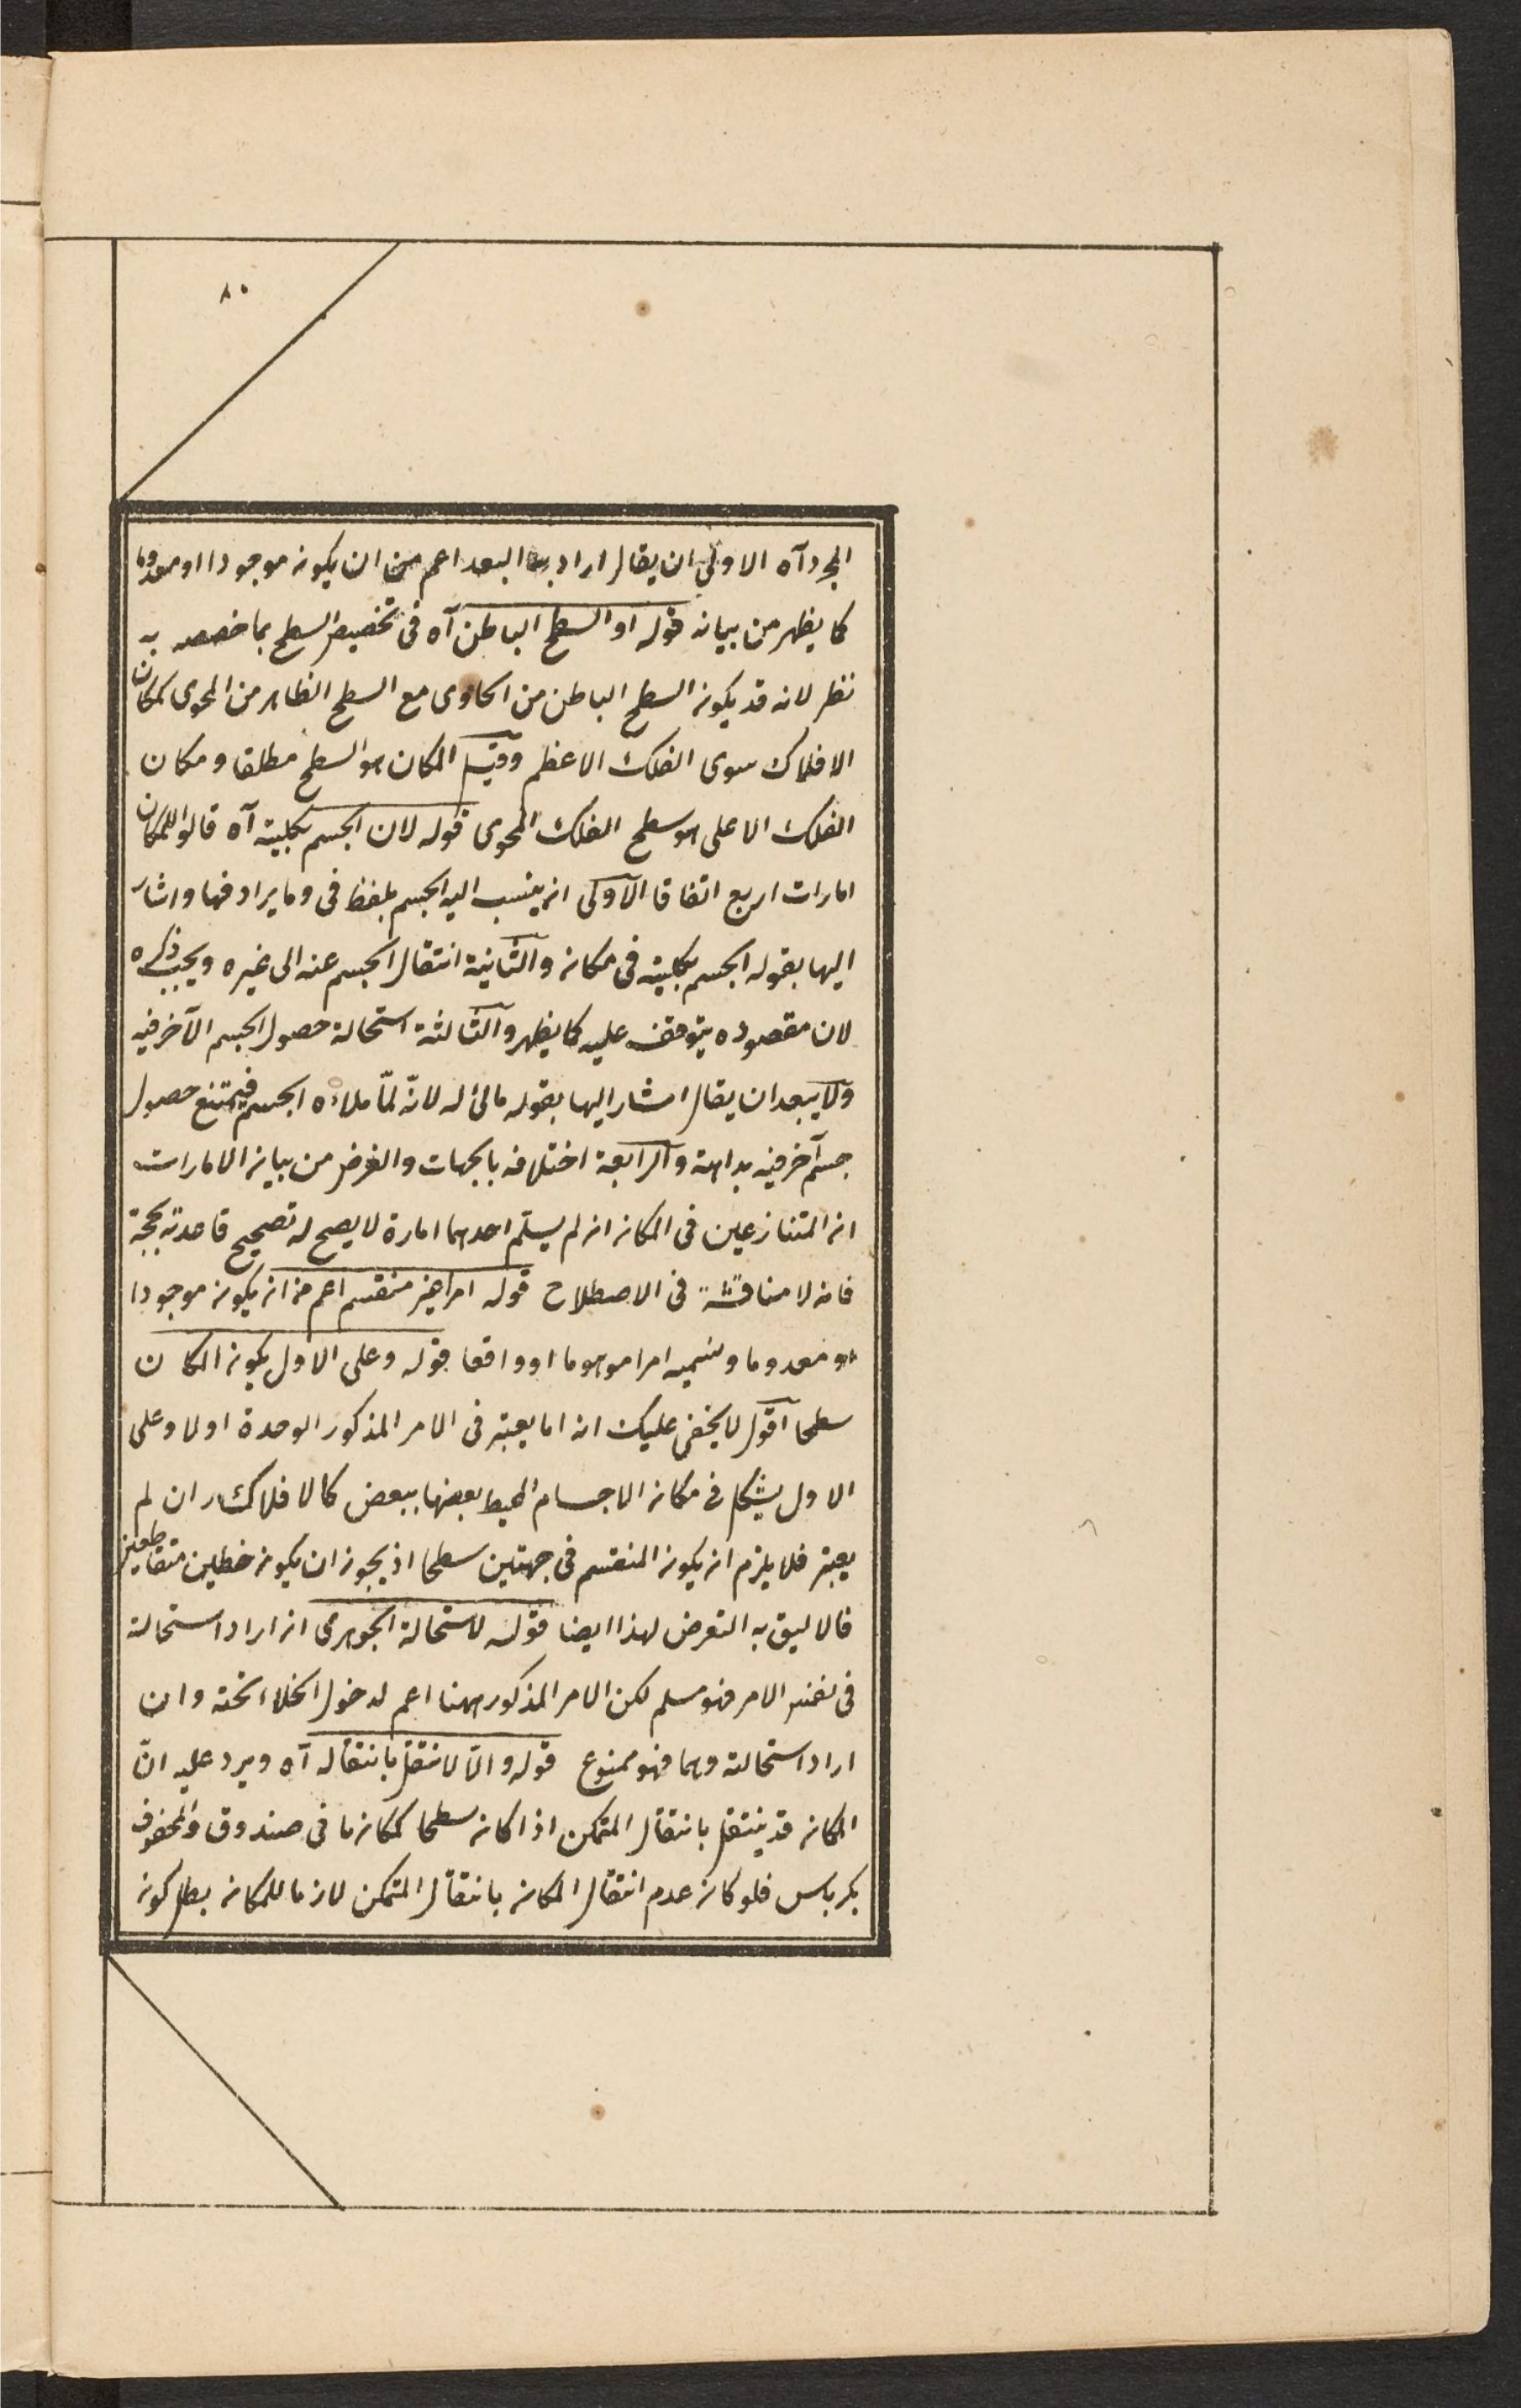 ٨٠
المجرد آه الاولى ان يقال اراد به البعد اعم من ان يكون موجودا او معدوما
كما يظهر من بيانه قوله او السطح الباطن آه فى تخصيص السطح بما خصصه به
نظر لانه قد يكون السطح الباطن من الحاوى مع السطح الظاهر من المحوى كمكان
الافلاك سوى الفلك الاعظم وقيل المكان هو السطح مطلقا ومكان
الفلك الاعلى هو سطح الفلك المحوى قوله لان الجسم بكليته آه قالوا للمكان
امارات اربع اتفاقا الاولى ان ينسب اليه الجسم بلفظ فى وما يرادفها واشار
اليها بقوله الجسم بكليته فى مكانه والثانية انتقال الجسم عنه الى غيره ويجب ذكره
لان مقصوده يتوقف عليه كما يظهر والثالثة استحالة حصول الجسم الآخر فيه
ولا يبعد ان يقال اشار اليها بقوله مالئ له لانّه لمّا ملاءه الجسم فيمتنع حصول
جسم آخر فيه بداهة والرابعة اختلافه بالجهات والغرض من بيان الامارات
ان المتنازعين فى المكان ان لم يسلّم احدهما امارة لا يصح له تصحيح قاعدته بحجة
فانه لا مناقشة فى الاصطلاح قوله امر غير منقسم اعم من ان يكون موجودا
او معدوما وسميه امرا موهوما او واقعا قوله وعلى الاول يكون المكان
سطحا اقول لا يخفى عليك انه اما يعتبر فى الامر المذكور الوحدة اولا وعلى
الاول يشكل فى مكان الاجسام المحيط بعضها ببعض كالافلاك وان لم
يعتبر فلا يلزم ان يكون المنقسم فى جهتين سطحا اذ يجوز ان يكون خطين متقاطعين
فالاليق به التعرض لهذا ايضا قوله لاستحالة الجوهرى ان اراد استحالته
فى نفس الامر فهو مسلم لكن الامر المذكور ههنا اعم لدخول الخلاء تحته وان
اراد استحالته وهما فهو ممنوع قوله والّا لانتقل بانتقاله آه ويرد عليه انّ
المكان قد ينتقل بانتقال المتمكن اذا كان سطحا كمكان ما فى صندوق والمحفوف
بكرباس فلو كان عدم انتقال المكان بانتقال المتمكن لازما للمكان بطل كون